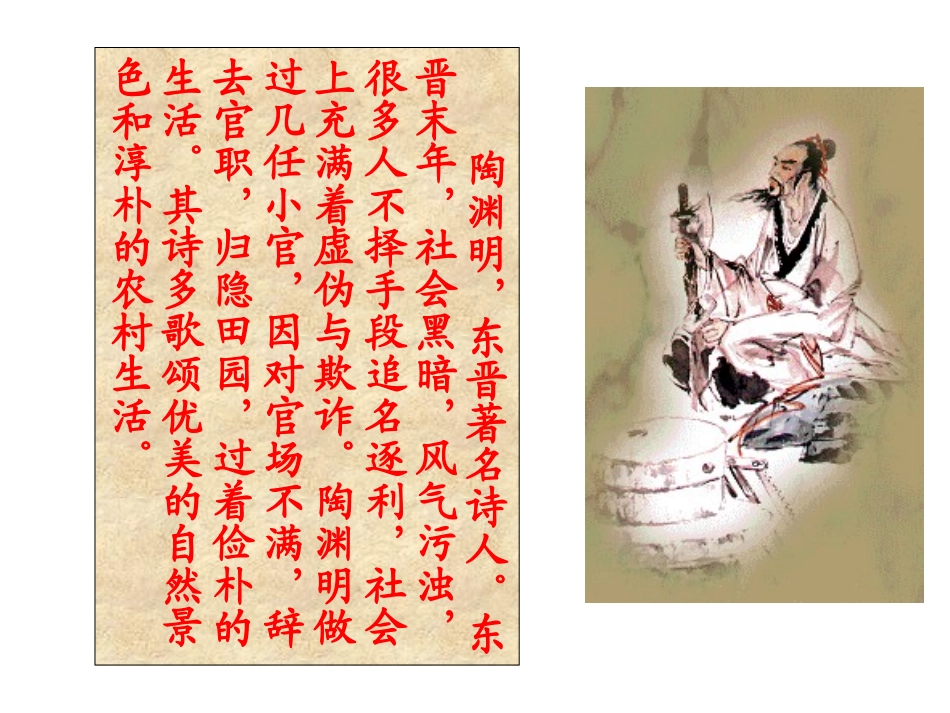 陶渊明，东晋著名诗人。东
晋末年，社会黑暗，风气污浊，
很多人不择手段追名逐利，社会
上充满着虚伪与欺诈。陶渊明做
过几任小官，因对官场不满，辞
去官职，归隐田园，过着俭朴的
生活。其诗多歌颂优美的自然景
色和淳朴的农村生活。